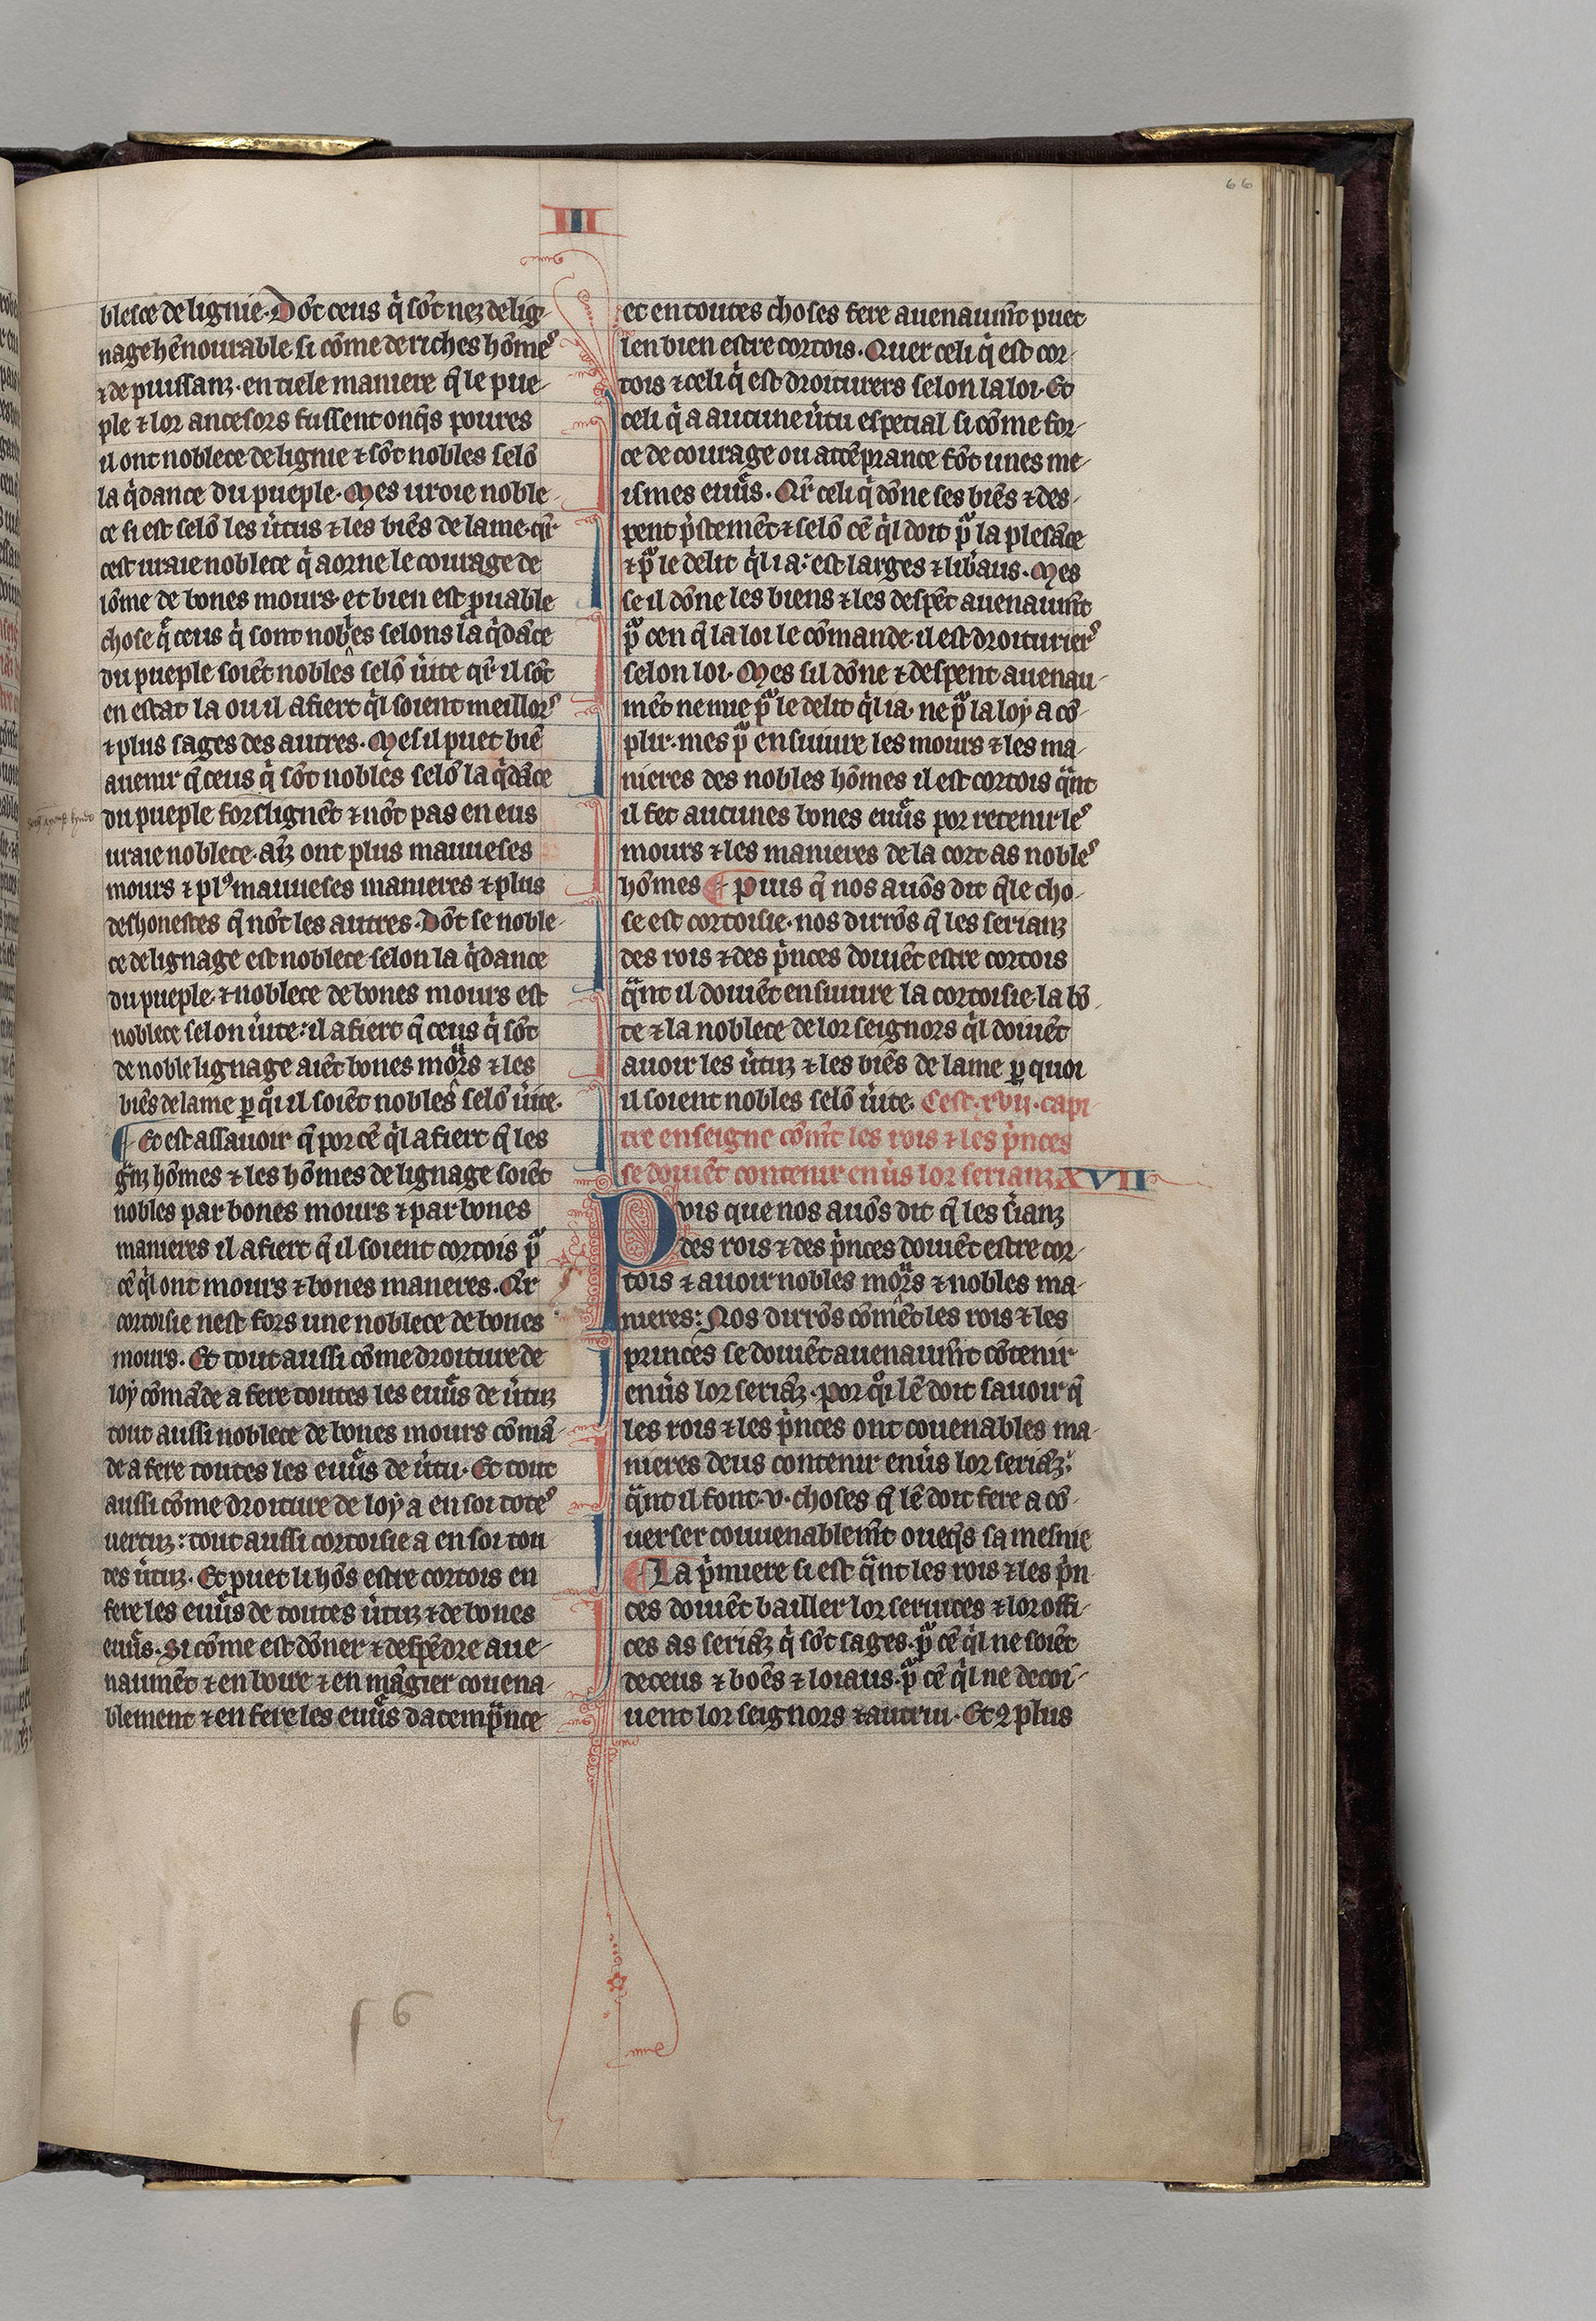 66
III
blesce de lignie. Dōt ceus q̇ sōt nez de lig-
nage hēnourable si cōme de riches hōmeˢ
⁊ de puissanz. en tiele maniere q̄ le pue-
ple ⁊ lor ancesors fussent onq̄s poures
il ont noblece de lignie ⁊ sōt nobles selō
la q̇dance du pueple. Mes uroie noble-
ce si est selō les v̇tus ⁊ les biēs de lame. qr̄
cest uraie noblece q̇ aorne le courage de
lōme de bones mours. et bien est ꝓuable
chose q̄ ceus q̇ sont nobles selons la q̇dāce
du pueple soiēt nobles selō v̇ite qr̄ il sōt
en estat la ou il afiert q̇l soient meillorˢ
⁊ plus sages des autres. Mes il puet biē
auenir q̄ ceus q̇ sōt nobles selō la q̇dāce
du pueple forslignēt ⁊ nōt pas en eus
uraie noblece. aīz ont plus mauueses
mours ⁊ plꝰ mauueses manieres ⁊ plus
deshonestes q̄ nōt les autres. Dōt se noble-
ce de lignage est noblece selon la q̇dance
du pueple. ⁊ noblece de bones mours est
noblece selon v̇ite: il afiert q̄ ceus q̇ sōt
de noble lignage aiēt bones mors ⁊ les
biēs de lame ꝑ qͦi il soiēt nobles selō v̇ite.
¶ Et est assauoir q̄ por cē q̇l afiert q̄ les
gͣnz hōmes ⁊ les hōmes de lignage soiēt
nobles par bones mours ⁊ par bones
manieres il afiert q̄ il soient cortois pͣ
cē q̇l ont mours ⁊ bones maneres. Qr̄
cortoisie nest fors une noblece de bones
mours. Et tout aussi cōme droiture de
loy cōmāde a fere toutes les euuͤs de v̇tuz
tout aussi noblece de bones mours cōmā-
de a fere toutes les euuͤs de v̇tu. Et tout
aussi cōme droiture de loy a en soi toteˢ
vertuz: tout aussi cortoisie a en soi tou
des v̇tuz. Et puet li hōs estre cortois en
fere les euuͤs de toutes v̇tuz ⁊ de bones
euuͤs. Si cōme est dōner ⁊ despēdre aue-
naumēt ⁊ en boire ⁊ en māgier couena-
blement ⁊ en fere les euuͤs datempͣnce
et en toutes choses fere auenaum̄t puet
len bien estre cortois. Quer celi q̇ est cor-
tois ⁊ celi q̇ est droiturers selon la loi. Et
celi q̇ a aucune v̇tu especial si cōme for-
ce de courage ou attēprance fōt unes me-
ismes euuͤs. Qr̄ celi q̇ dōne ses biēs ⁊ des-
pent ṗstemēt ⁊ selō cē q̇l doit pͣ la plesāce
⁊ pͣ le delit q̇l i a: est larges ⁊ lib̄aus. Mes
se il dōne les biens ⁊ les despēt auenaum̄t
pͣ cen q̄ la loi le cōmande. il est droiturierˢ
selon loi. Mes sil dōne ⁊ despent auenau-
mēt ne mie pͣ le delit q̇l i a. ne pͣ la loy a cō-
plir. mes pͣ ensuiure les mours ⁊ les ma-
nieres des nobles hōmes il est cortois qͣnt
il fet aucunes bones euuͤs por retenir leˢ
mours ⁊ les manieres de la cort as nobleˢ
hōmes ¶ Puis q̄ nos auōs dit q̄le cho-
se est cortoisie. nos dirrōs q̄ les serianz
des rois ⁊ des ṗnces doiuēt estre cortois
qͣnt il doiuēt ensuiure la cortoisie. la bō-
te ⁊ la noblece de lor seignors q̇l doiuēt
auoir les v̇tuz ⁊ les biēs de lame ꝑ quoi
il soient nobles selō v̇ite. Cest. xvii. capi-
tre enseigne cōm̄t les rois ⁊ les ṗnces
se doiuēt contenir env̇s lor serianz XVII
Pvis que nos auōs dit q̄ les s̄ianz
des rois ⁊ des ṗnces doiuēt estre cor-
tois ⁊ auoir nobles mors ⁊ nobles ma-
nieres: Nos dirrōs cōmēt les rois ⁊ les
princes se doiuēt auenaum̄t cōtenir
env̇s lor seriāz. por qͦi lē doit sauoir q̄
les rois ⁊ les ṗnces ont couenables ma-
nieres deus contenir env̇s lor seriāz:
qͣnt il font. v. choses q̄ lē doit fere a cō-
uerser couuenablem̄t oueq̄s sa mesnie
¶ La ṗmiere si est qͣnt les rois ⁊ les ṗn
ces doiuēt bailler lor seruices ⁊ lor offi-
ces as seriāz q̇ sōt sages. pͣ cē q̇l ne soiēt
deceus ⁊ boēs ⁊ loiaus. pͣ cē q̇l ne decoi-
uent lor seignors ⁊ autrui. Et 2 plus
f 6